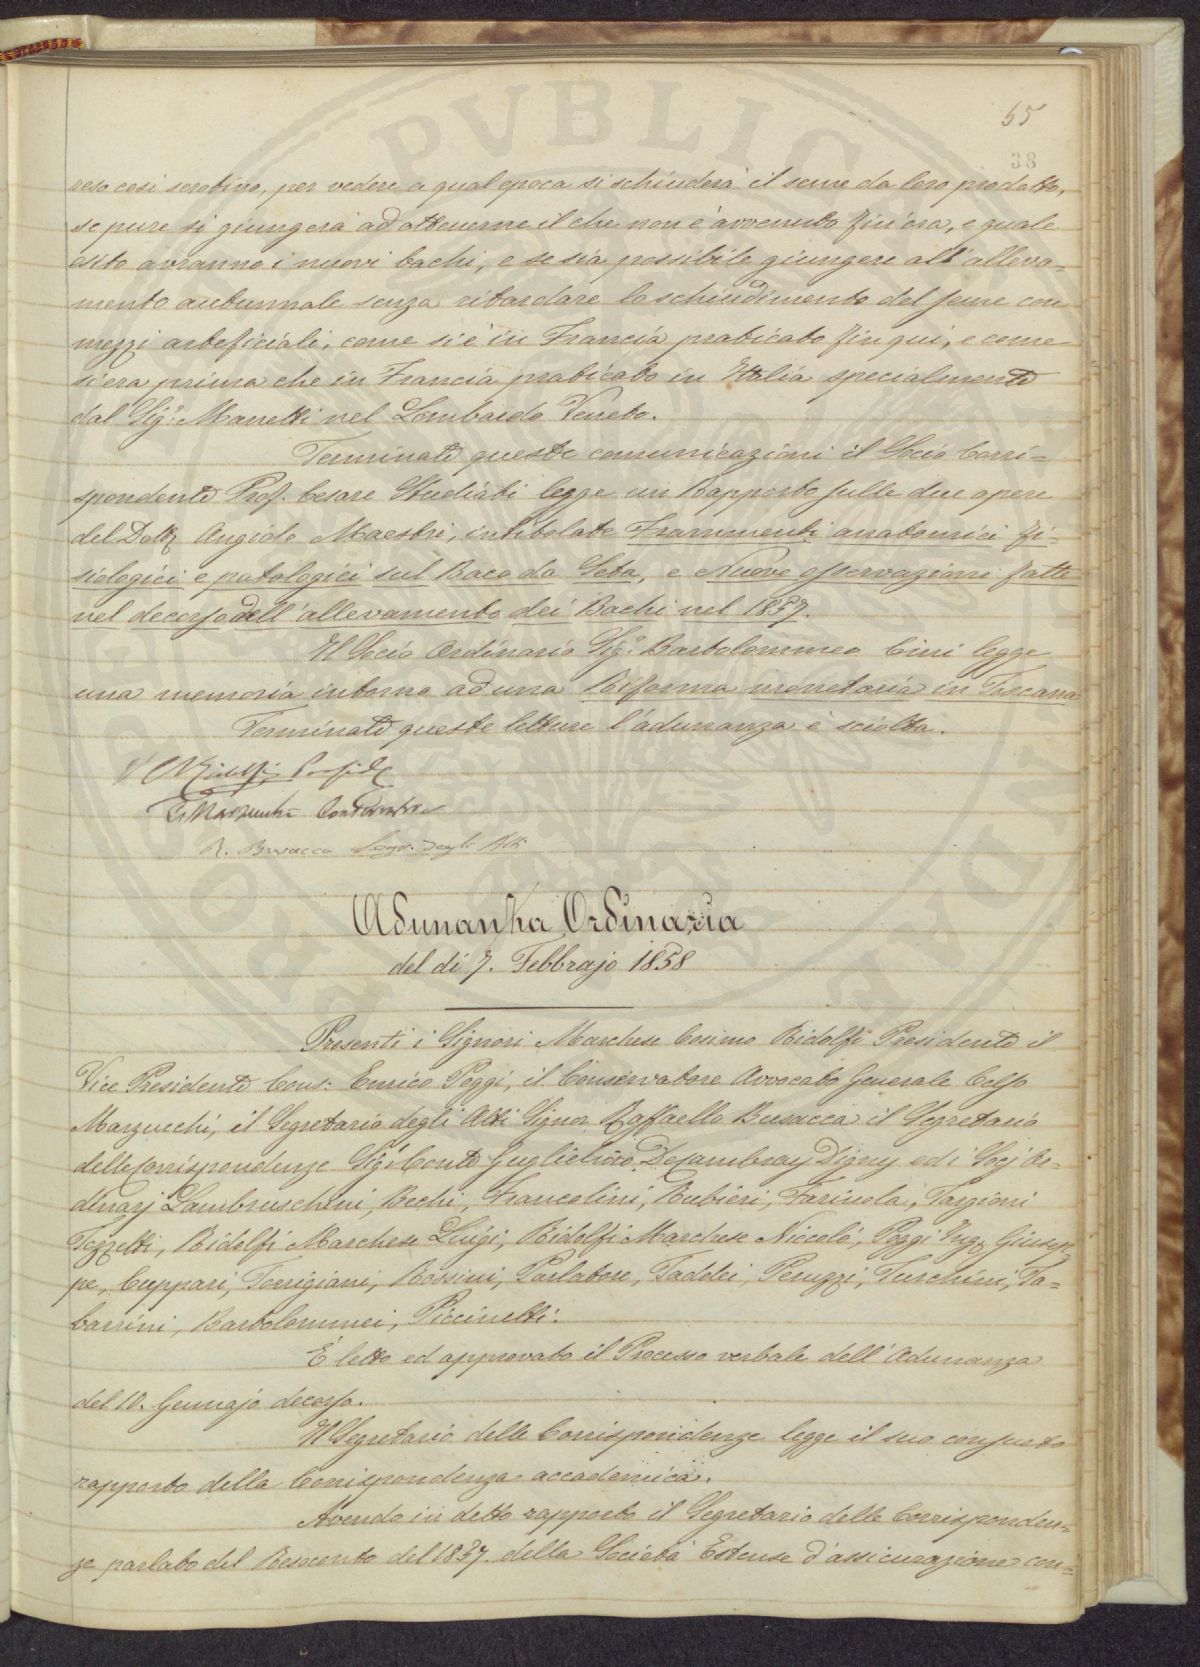 55
38
reso così serotino, per vedere a qual epoca si schiuderà il seme da loro prodotto,
se pure si giungerà ad ottenerne il che non è avvenuto fin'ora, e quale
esito avranno i nuovi bachi, e se sia possibile giungere all'alleva-
mento autunnale senza ritardare lo schiudimento del seme con
mezzi arteficiali, come si è in Francia praticato fin qui, e come
si era prima che in Francia praticato in Italia specialmente
dal Sigr. Manetti nel Lombardo Veneto.
Terminate queste comunicazioni il Socio Corri-
spondente Prof. Cesare Studiati legge un Rapporto sulle due opere
del Dottr Angiolo Maestri, intitolate Frammenti anatomici fi-
siologici e patologici sul Baco da Seta, e Nuove osservazioni fatte
nel decorso dell'allevamento dei Bachi nel 1857.
Il Socio Ordinario Sigr. Bartolommeo Cini legge
una memoria intorno ad una Riforma monetaria in Toscana
Terminate queste letture l'adunanza è sciolta.
C Ridolfi Preside
C. Marzucchi Conservatore
R. Busacca Segr. degli Atti
Adunanza Ordinaria
del dì 7. Febbrajo 1858
Presenti i Signori Marchese Cosimo Ridolfi Presidente il
Vice Presidente Cons: Enrico Poggi, il Conservatore Avvocato Generale Celso
Marzucchi, il Segretario degli Atti Signor Raffaello Busacca il Segretario
delle Corrispondenze Sigr Conte Guglielmo Decambray Digny ed i Socj Or-
dinarj Lambruschini, Bechi, Francolini, Rubieri, Farinola, Targioni
Tozzetti, Ridolfi Marchese Luigi, Ridolfi Marchese Niccolò, Poggi Ingr Giusep-
pe, Cuppari, Torrigiani, Rossini, Parlatore, Taddei, Peruzzi, Turchini, Ta-
barrini, Bartolommei, Piccinetti.
È letto ed approvato il Processo verbale dell'Adunanza
del 10. Gennajo decorso.
Il Segretario delle Corrispondenze legge il suo consueto
rapporto della Corrispondenza accademica.
Avendo in detto rapporto il Segretario delle Corrisponden-
ze parlato del Resoconto del 1857. della Società Estense d'assicurazione con-